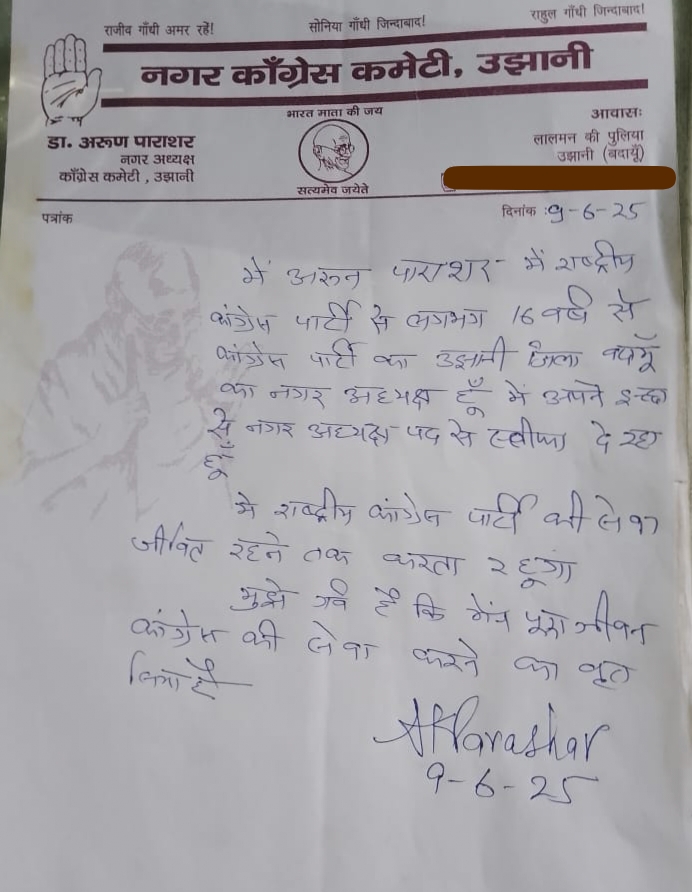 राजीव गाँधी अमर रहें! सोनिया गाँधी जिन्दाबाद! राहुल गाँधी जिन्दाबाद!
नगर काँग्रेस कमेटी, उझानी
भारत माता की जय
सत्यमेव जयते
डा. अरूण पाराशर
नगर अध्यक्ष
काँग्रेस कमेटी , उझानी
आवासः
लालमन की पुलिया
उझानी (बदायूँ)
पत्रांक
दिनांक :9-6-25
में अरून पाराशर में राष्ट्रीय
कांग्रेस पार्टी से लगभग 16 वर्ष से
कांग्रेस पार्टी का उझानी जिला बदायूँ
का नगर अध्यक्ष हूँ में अपने इच्छा
से नगर अध्यक्ष पद से स्तीफा दे रहा
हूँ
मे राष्ट्रीय कांग्रेस पार्टी की सेवा
जीवित रहने तक करता रहूगा
मुझे गर्व है कि मेंने पूरा जीवन
कांग्रेस की सेवा करने का वृत
लिया है
AKParashar
9-6-25